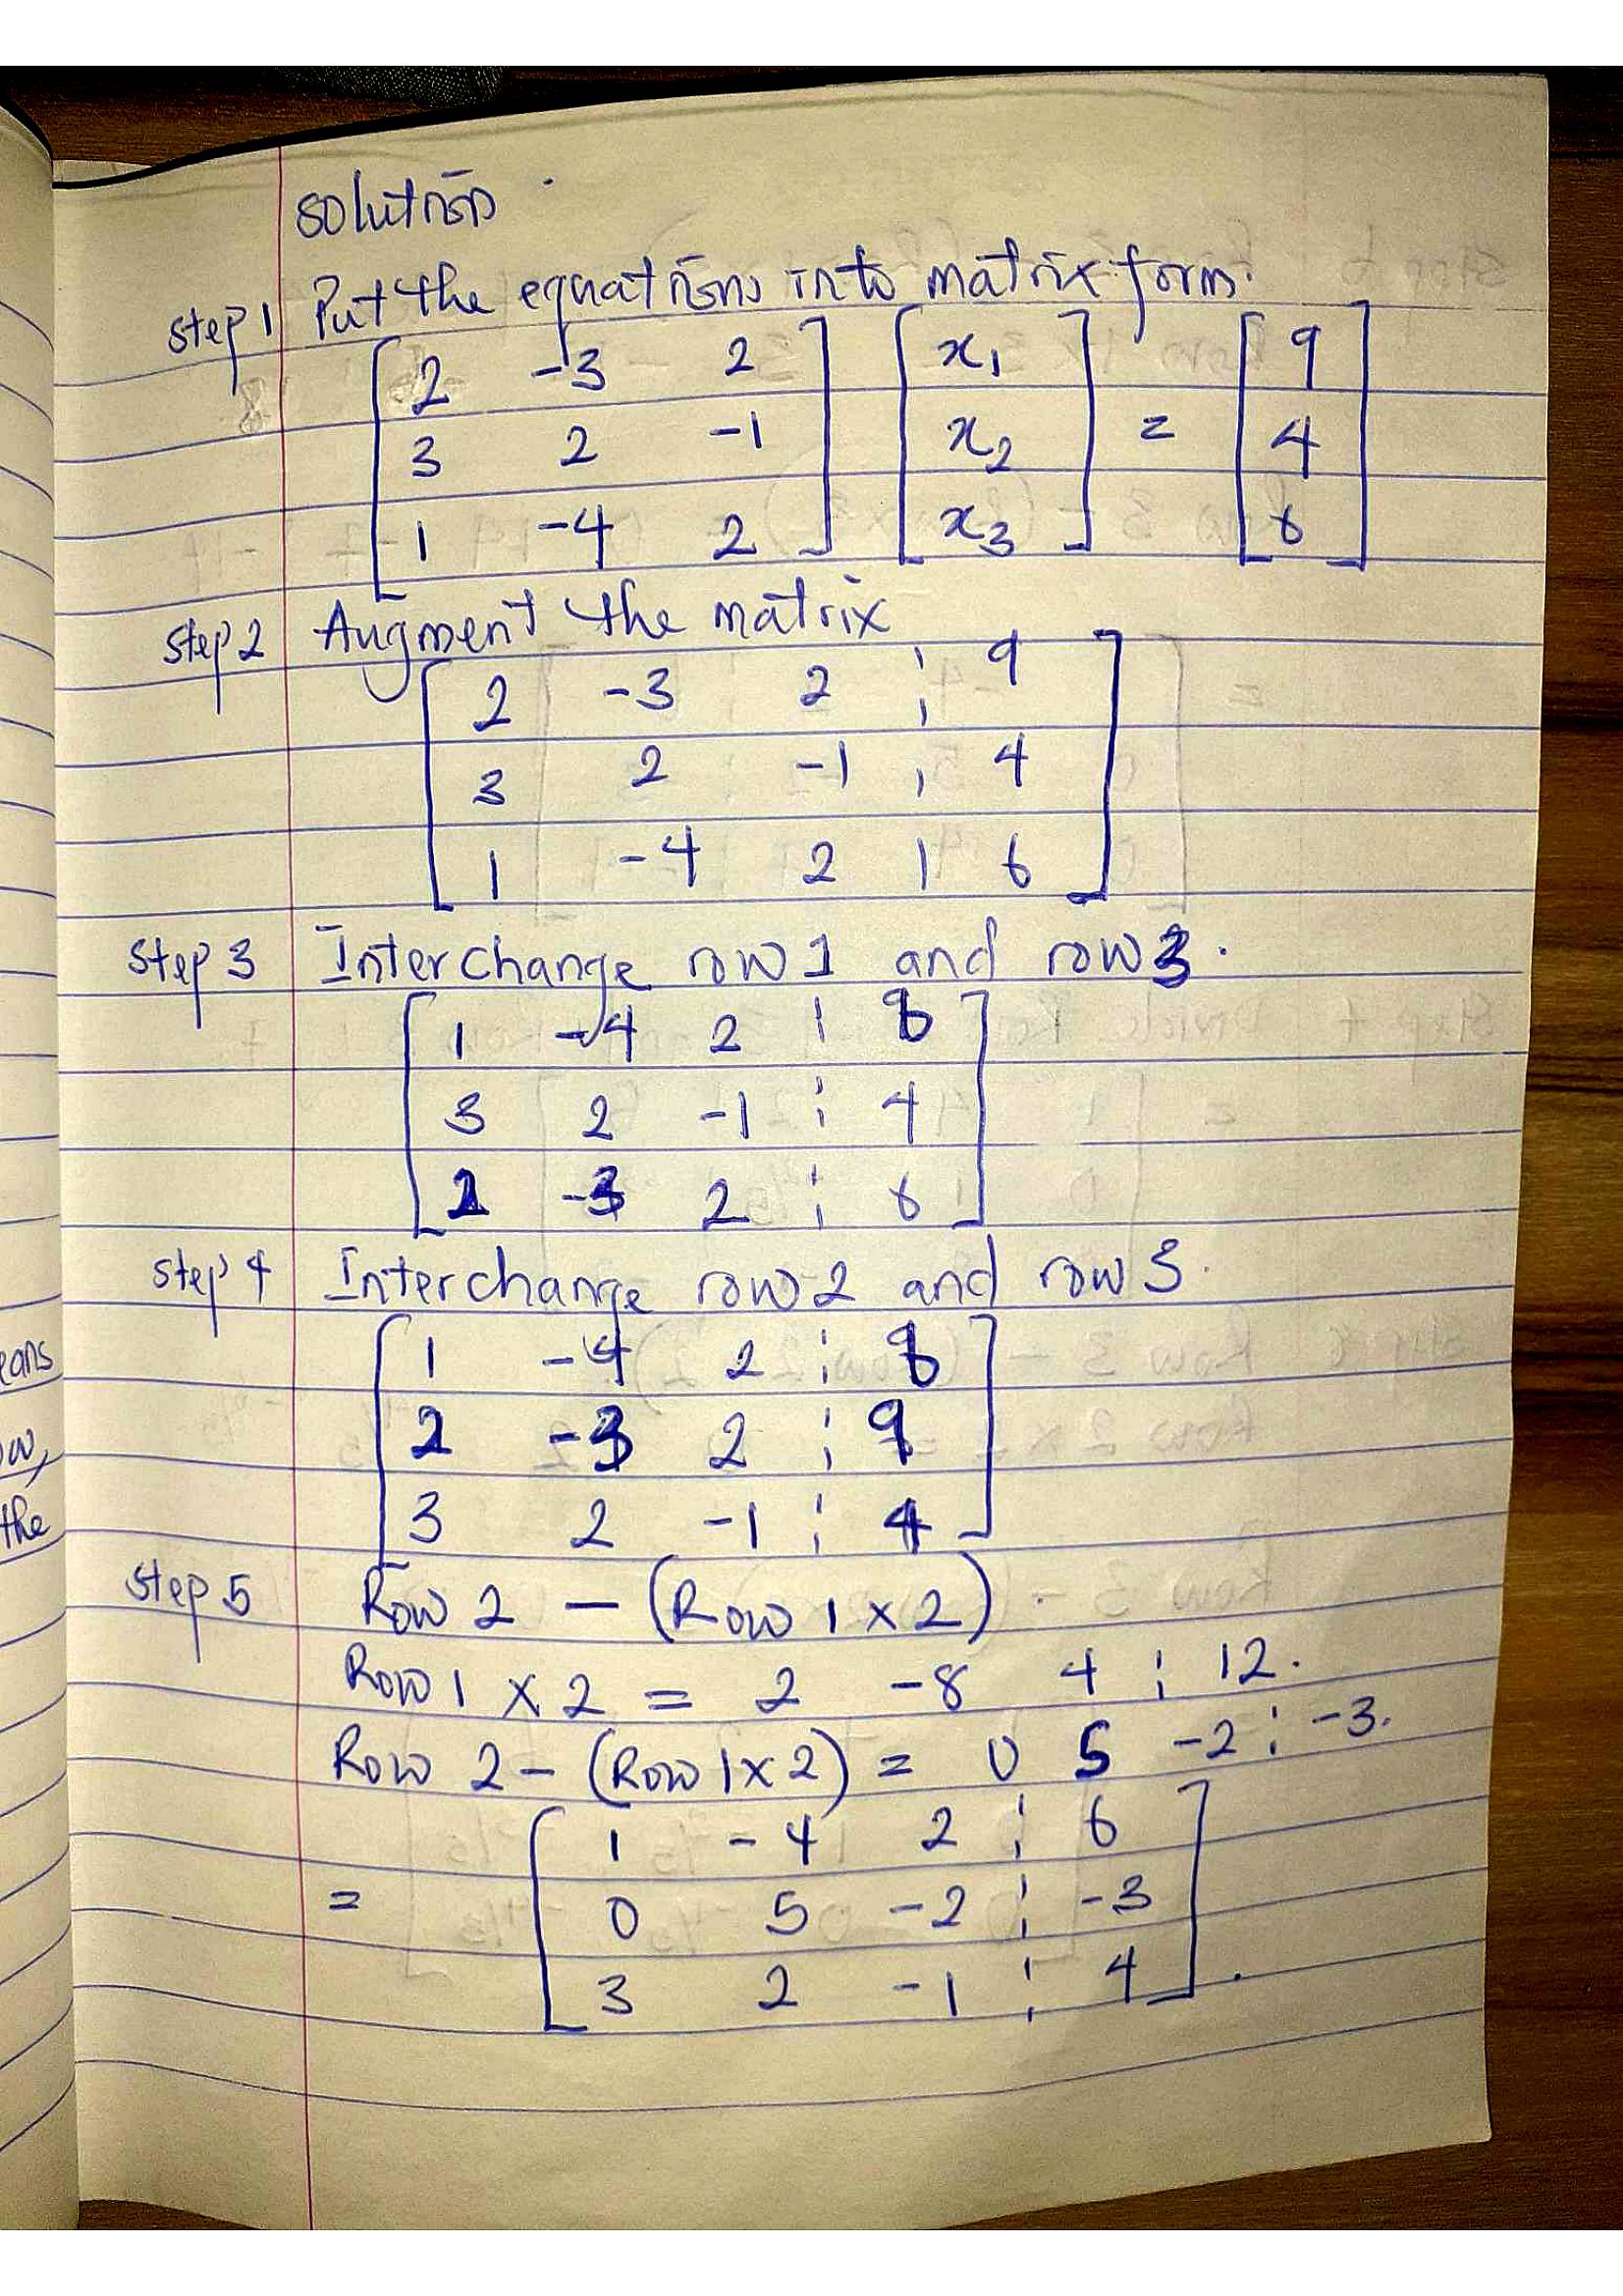 Solution
step 1 Put the equations into matrix form.
2 -3 2 x₁ 9
3 2 -1 x₂ = 4
1 -4 2 x₃ 6
step 2 Augment the matrix
2 -3 2 ¦ 9
3 2 -1 ¦ 4
1 -4 2 | 6
step 3 Interchange row 1 and row 3.
1 -4 2 ¦
3 2 -1 ¦ 4
2 -3 2 ¦ 6
step 4 Interchange row 2 and row 3.
1 -4 2 ¦
2 -3 2 ¦ 9
3 2 -1 ¦ 4
step 5 Row 2 - (Row 1 x 2).
Row 1 x 2 = 2 -8 4 ¦ 12.
Row 2 - (Row 1 x 2) = 0 5 -2 ¦ -3.
1 -4 2 ¦ 6
= 0 5 -2 ¦ -3
3 2 -1 ¦ 4 .
eans
ow,
the